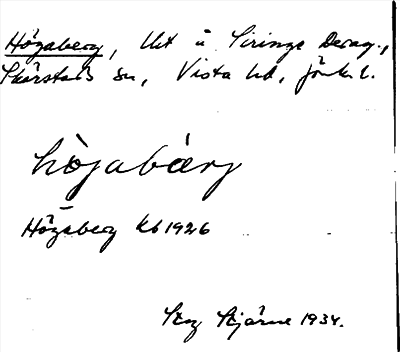 Högaberg, lht å Siringe Berag.,
Skärstads sn, Vista hd, Jönk. l.
hògabærj
Högaberg kb 1926
Stig Stjärne 1934.